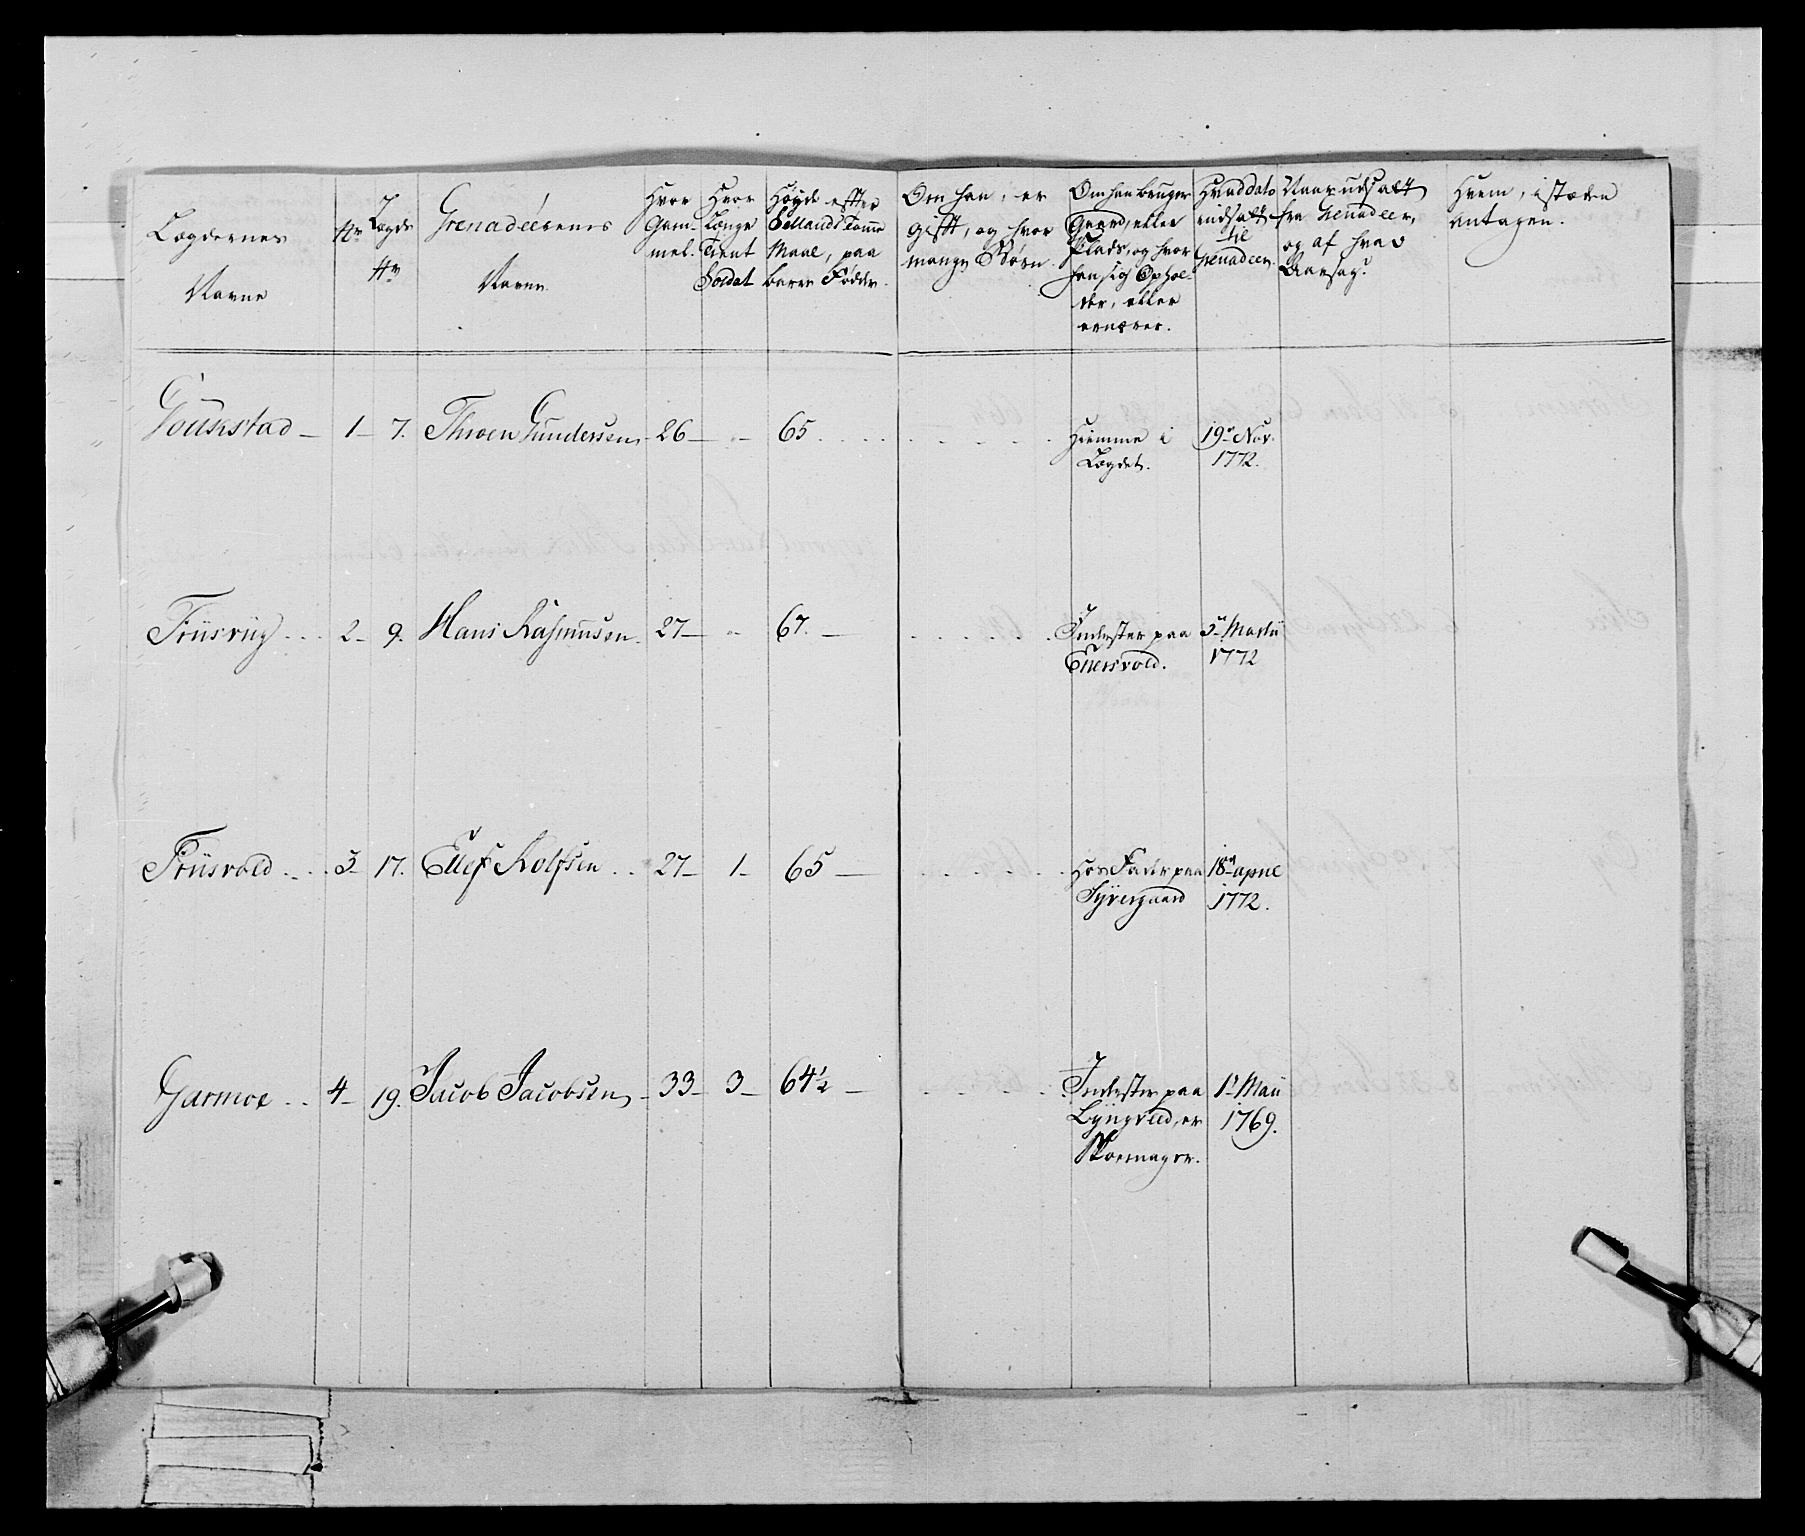 Lægdernes Navne
No
Lægds No
Grenadeerernes Navne
Hvor Gammel.
Hvor Længe Tient Soldat
Høyde effter Sellands Tomme Maal, paa barre Fødder.
Om han, er gifft, og hvor mange Børn.
Om han bruger Gaard, eller Plads, og hvor han sig Opholder, eller ernærer.
Hvad dato indsatt til Grenadeer.
Naar udsatt fra Grenadeer, og af hvad Aarsag?
Hvem, i stæden antagen.
Goukstad – 1 – 7. Throen Gundersen – 26 – " – 65 . . . . Hiemme i Lægdet. 19de Nov. 1772.
2 – 9. Hans Rasmusen. 27 – " 67. – . . . . Inderster paa Ellersvold. 3de Martii 1772
3 – 17. Ellef Rolfsen . . 27 – 1 – 65 – . . . . Hos Fader paa 18de april 1772.
Garmoe . . 4 – 19. Jacob Jacobsen – 33 – 3 – 64 1/2 – . . . . Inderster paa Lyngved, er Skoemager. 1te Maii 1769.